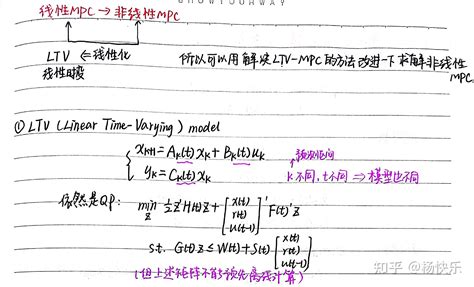 线性MPC → 非线性MPC
LTV ⇐ 线性化
线性时变
所以可以用解决LTV-MPC的方法改进一下求解非线性
MPC
① LTV (Linear Time-Varying) model
x_{k+1} = A_k(t) x_k + B_k(t) u_k
y_k = C_k(t) x_k
k不同, t不同 ⇒ 模型也不同
依然是QP: min_z ½ z'H(t)z + [x(t) r(t) u(t-1)]' F(t)' z
s.t. G(t) z ≤ W(t) + S(t) [x(t) r(t) u(t-1)]
(但上述矩阵不能预先离线计算)
知乎 @杨快乐